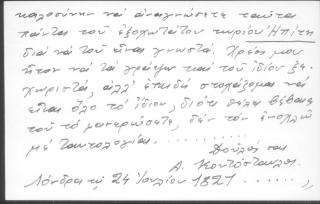 καλοσύνην νὰ ἀναγνώσετε ταῦτα
πάντα τοῦ ἐξοχωτάτου κυρίου Ἠπίτη
διὰ νὰ τοῦ εἶναι γνωστά. Χρέος μου
ἦτον νὰ τὰ γράψω καὶ τοῦ ἰδίου ξε-
χωριστά, ἀλλ' ἐπειδὴ στοχάζομαι νὰ
εἶναι ὅλο τὸ ἴδιον, διότι θέλει βέβαια
τοῦ τὸ φανερώσετε, δὲν τὸν ἐνοχλῶ
μὲ ταυτολογίαν. ..........
Δοῦλος σας
Α. Κοντόσταυλος.
Λόνδρα τῇ 24 Ἰουλίου 1821 ......